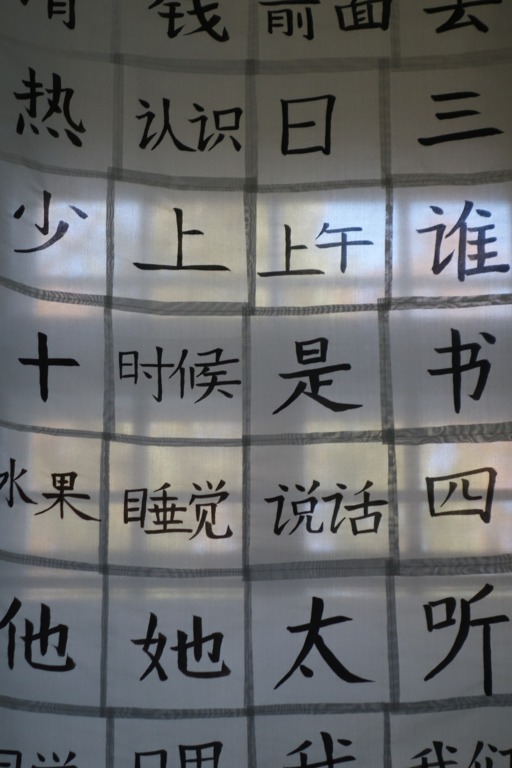 钱 前面 去
热 认识 日 三
少 上 上午 谁
十 时候 是 书
水果 睡觉 说话 四
他 她 太 听
我 我们